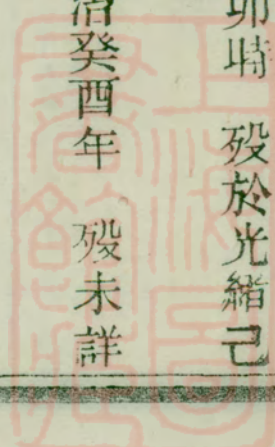 卯時 歿於光緒己
癸酉年 歿未詳